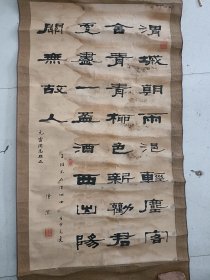 渭城朝雨浥輕塵客
舍青青柳色新勸君
更盡一盃酒西出陽
關無故人